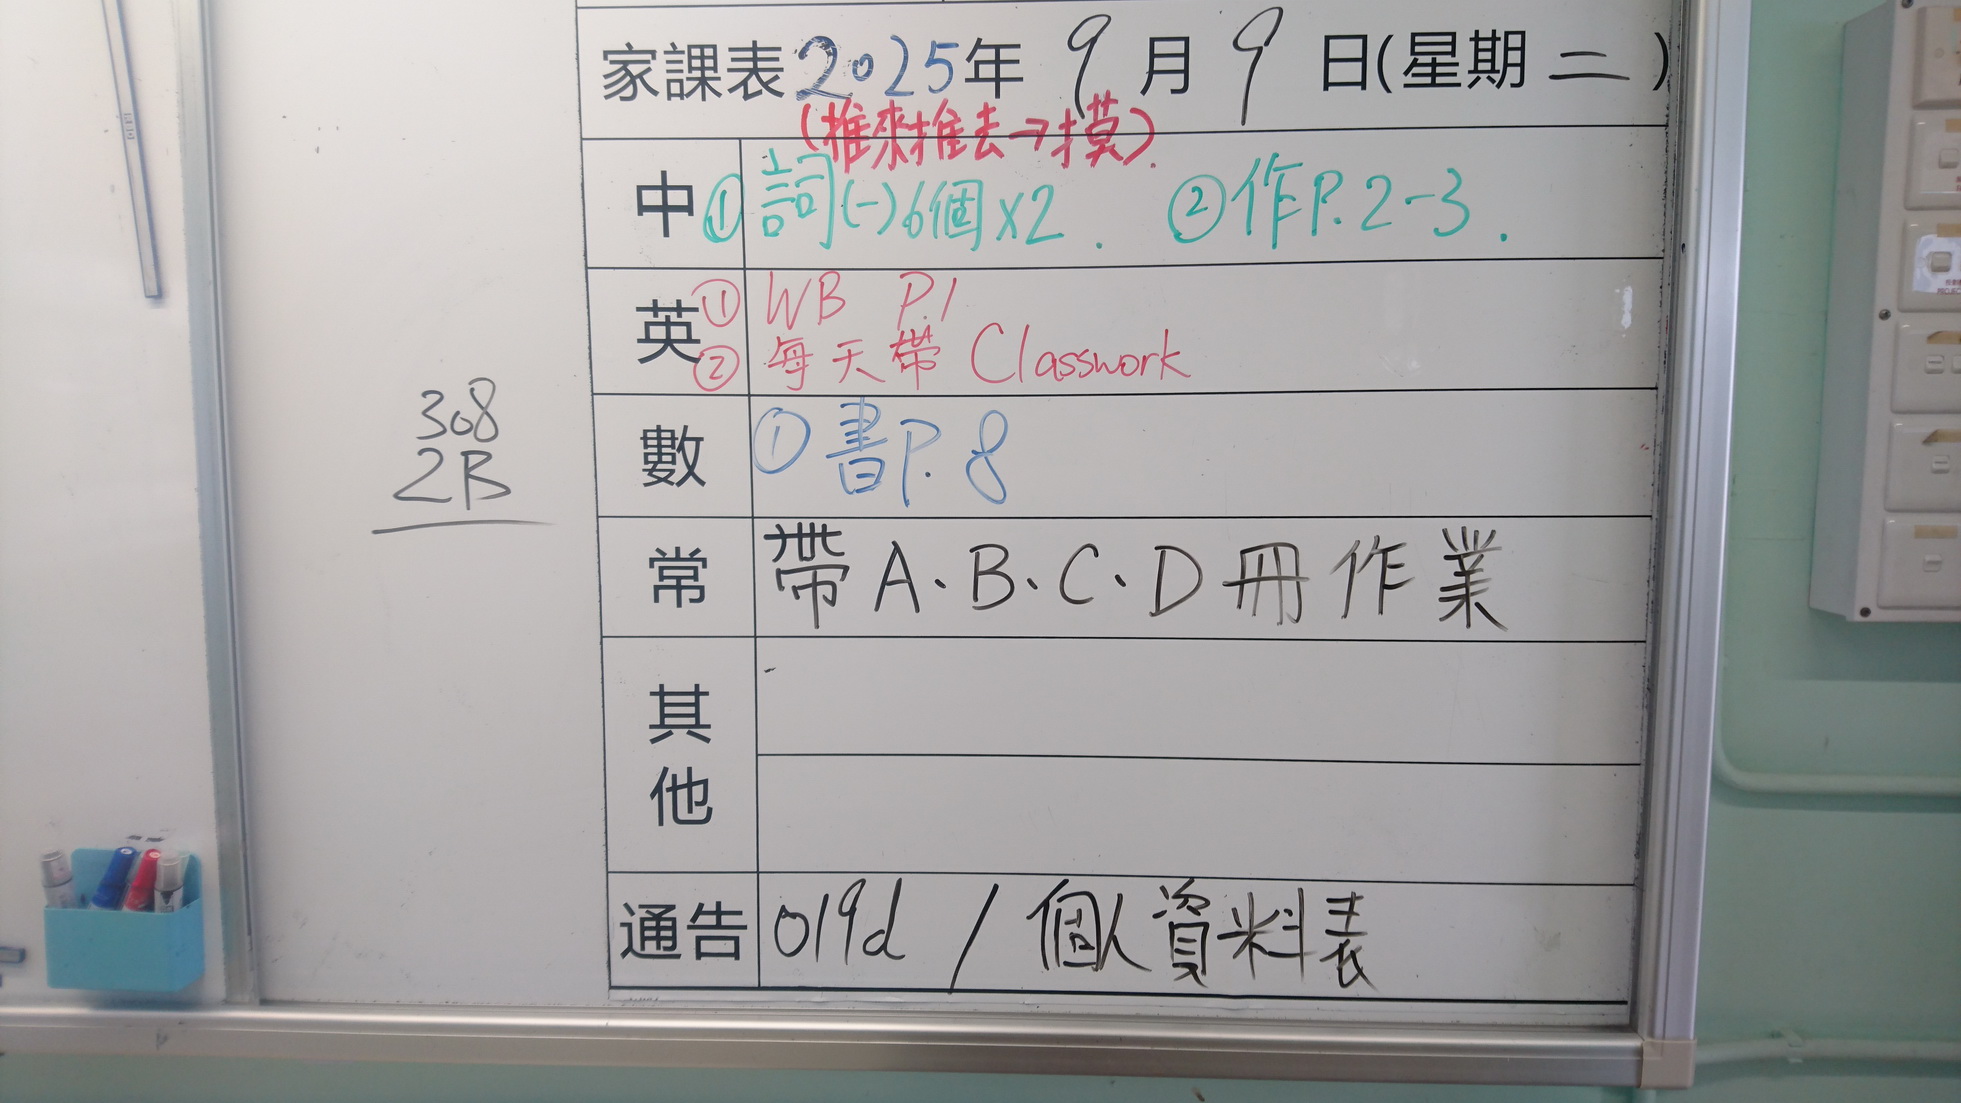 家課表2025年 9 月 9 日(星期 二 )
(推來推去→摸).
中 ① 詞(一)6個x2. ②作P.2-3.
英 ① WB P.1
② 每天帶 Classwork
308
2B
數 ① 書P.8
常 帶A、B、C、D冊作業
其他
通告 019d / 個人資料表